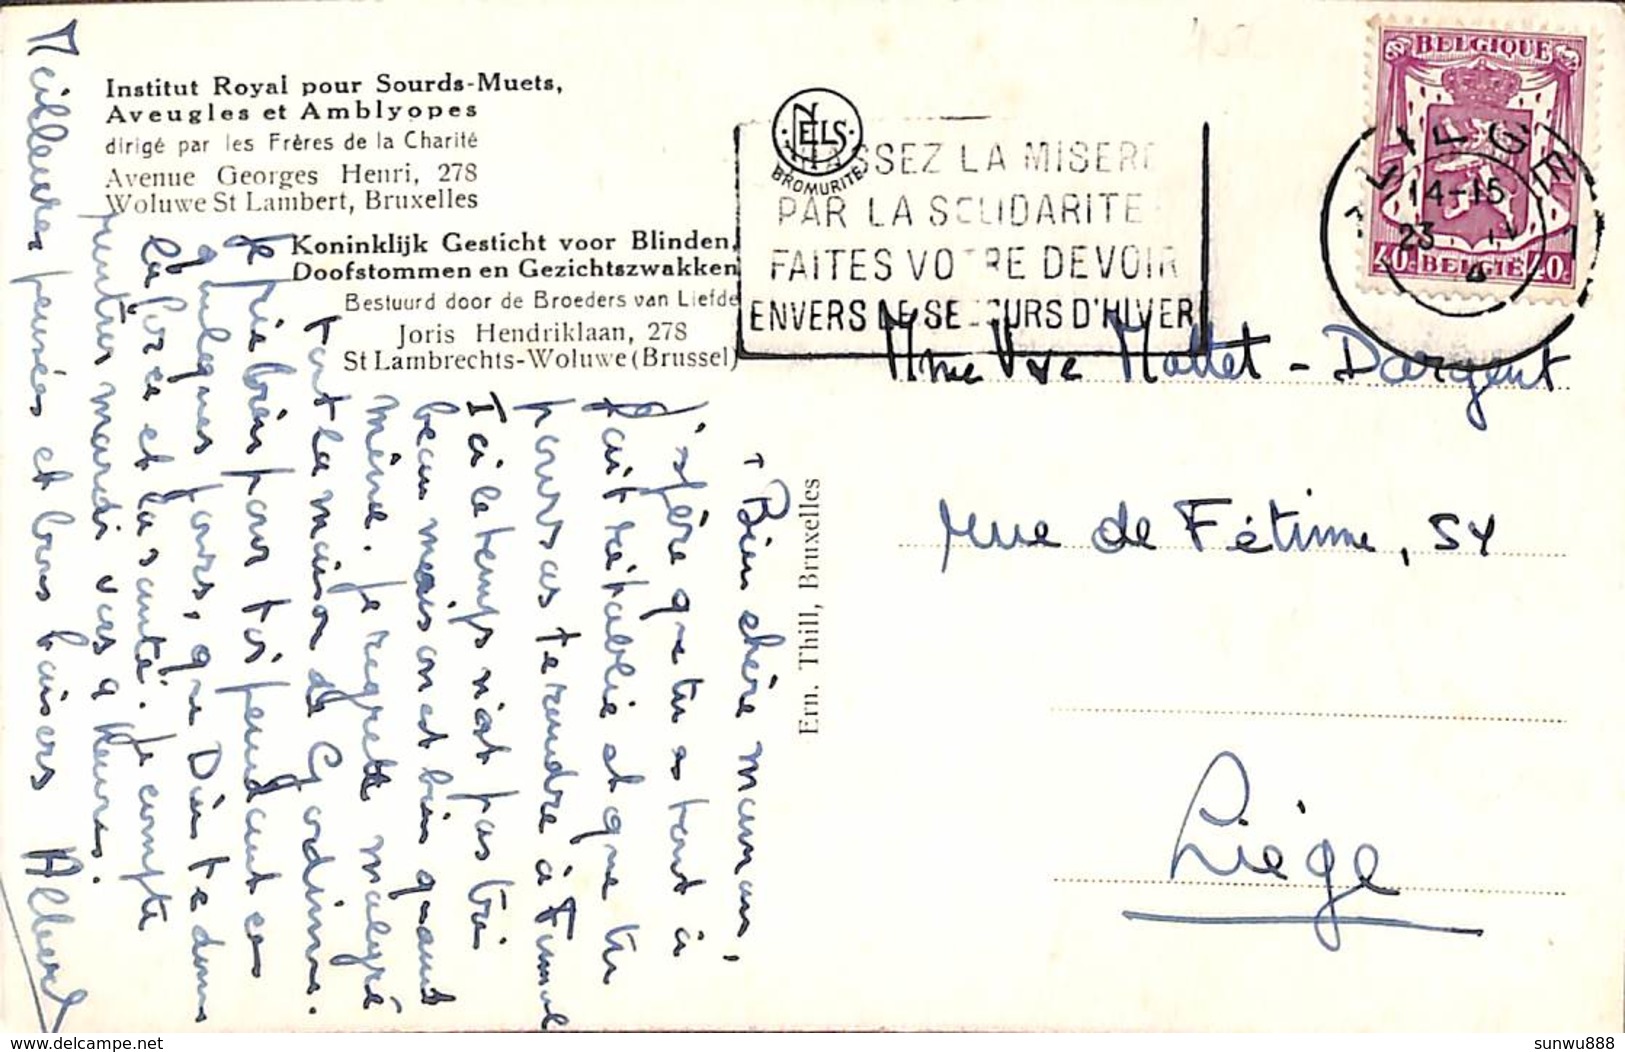 Institut Royal pour Sourds-Muets,
Aveugles et Amblyopes
dirigé par les Frères de la Charité
Avenue Georges Henri, 278
Woluwe St Lambert, Bruxelles
Koninklijk Gesticht voor Blinden,
Doofstommen en Gezichtszwakken
Bestuurd door de Broeders van Liefde
Joris Hendriklaan, 278
St Lambrechts-Woluwe (Brussel)
NELS
BROMURITE
ASSEZ LA MISERE
PAR LA SOLIDARITE
FAITES VOTRE DEVOIR
ENVERS LE SECOURS D'HIVER
BELGIQUE
40c BELGIË 40c
LIEGE 1
14-15
23
Mme Vve Mottet - Dargent
rue de Fétinne, 54
Liége
Ern. Thill, Bruxelles
Bien chère maman,
J'espère que tu es tout à
fait rétablie et que tu
pourras te rendre à
Ici le temps n'est pas très
beau mais on est bien quand
même. Je regrette malgré
tout la maison de
Je prie bien pour toi pendant ces
quelques jours, que Dieu te donne
la force et la santé. Je compte
rentrer mardi vers 9 heures.
Meilleures pensées et bons baisers Albert
sunwu888
delcampe.net